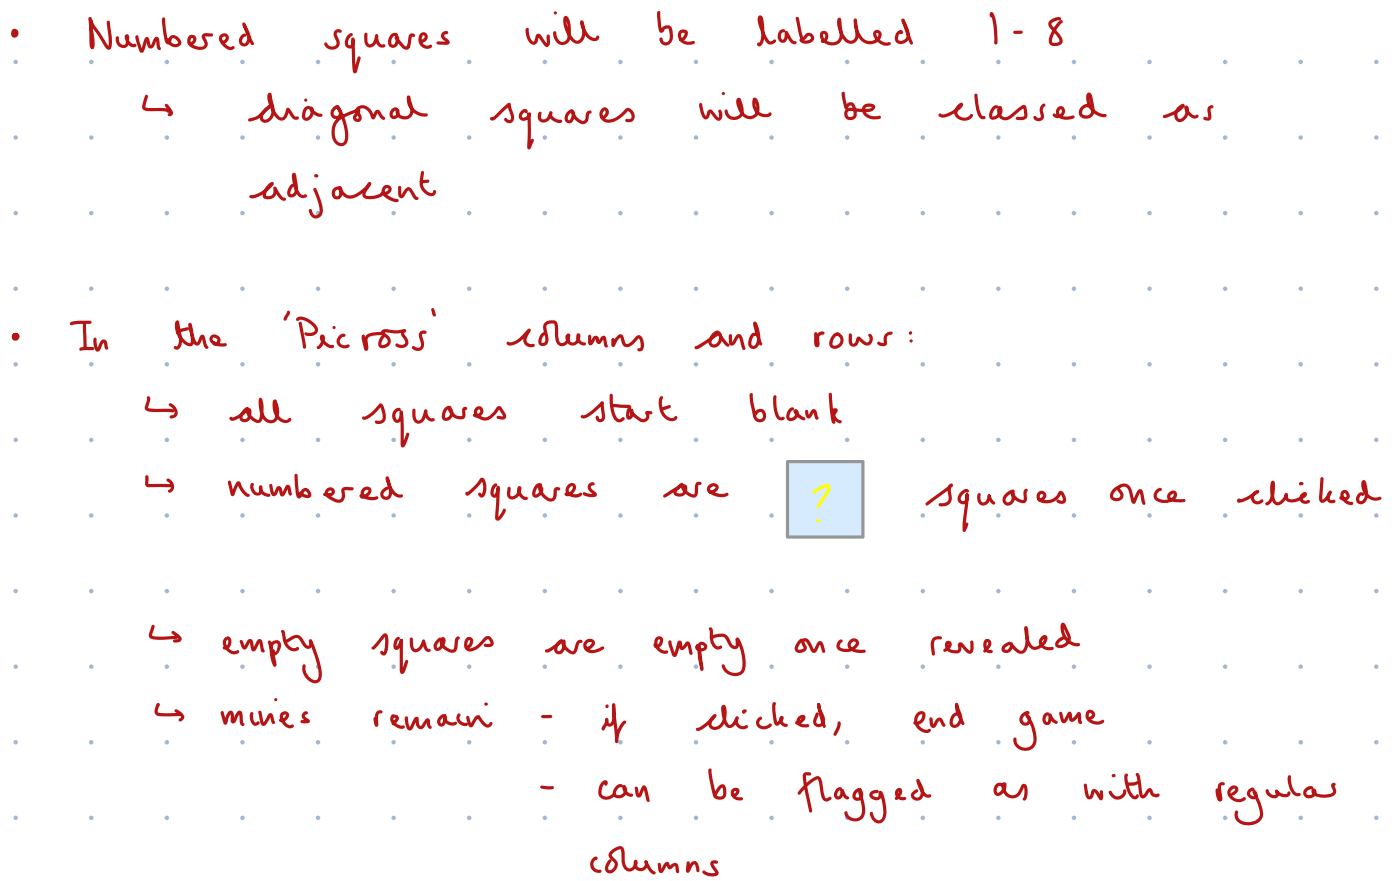 • Numbered squares will be labelled 1-8
↳ diagonal squares will be classed as
adjacent
• In the 'Picross' columns and rows:
↳ all squares start blank
↳ numbered squares are ? squares once clicked
↳ empty squares are empty once revealed
↳ mines remain - if clicked, end game
- can be flagged as with regular
columns